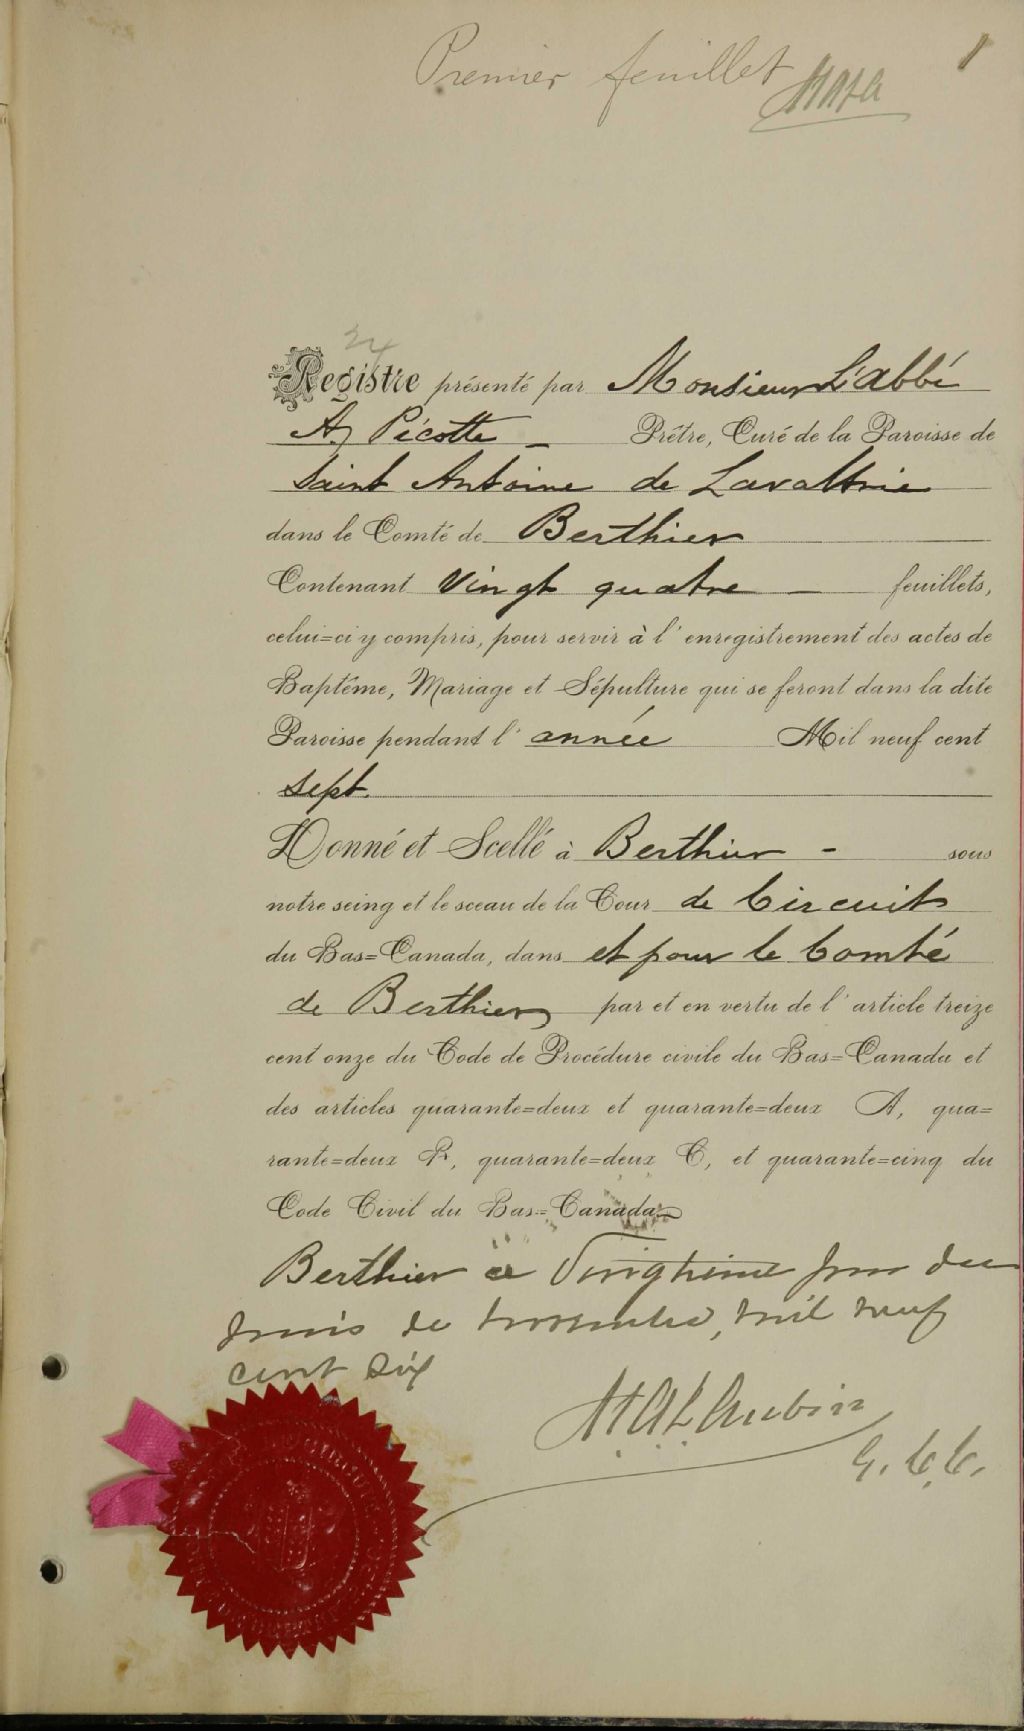 Premier feuillet 1
24
Registre présenté par Monsieur L'abbé
A. Pécotte - Prêtre, Curé de la Paroisse de
Saint Antoine de Lavaltrie
dans le Comté de Berthier
Contenant Vingt quatre - feuillets,
celui=ci y compris, pour servir à l'enregistrement des actes de
Baptême, Mariage et Sépulture qui se feront dans la dite
Paroisse pendant l'année Mil neuf cent
sept.
Donné et Scellé à Berthier - sous
notre seing et le sceau de la Cour de Circuit
du Bas=Canada, dans et pour le Comté
de Berthier par et en vertu de l'article treize
cent onze du Code de Procédure civile du Bas=Canada et
des articles quarante=deux et quarante=deux A, qua=
rante=deux B, quarante=deux C, et quarante=cinq du
Code Civil du Bas=Canada.
Berthier ce Vingtième jour du
mois de novembre, mil neuf
cent six
Aubin
G. C. C.